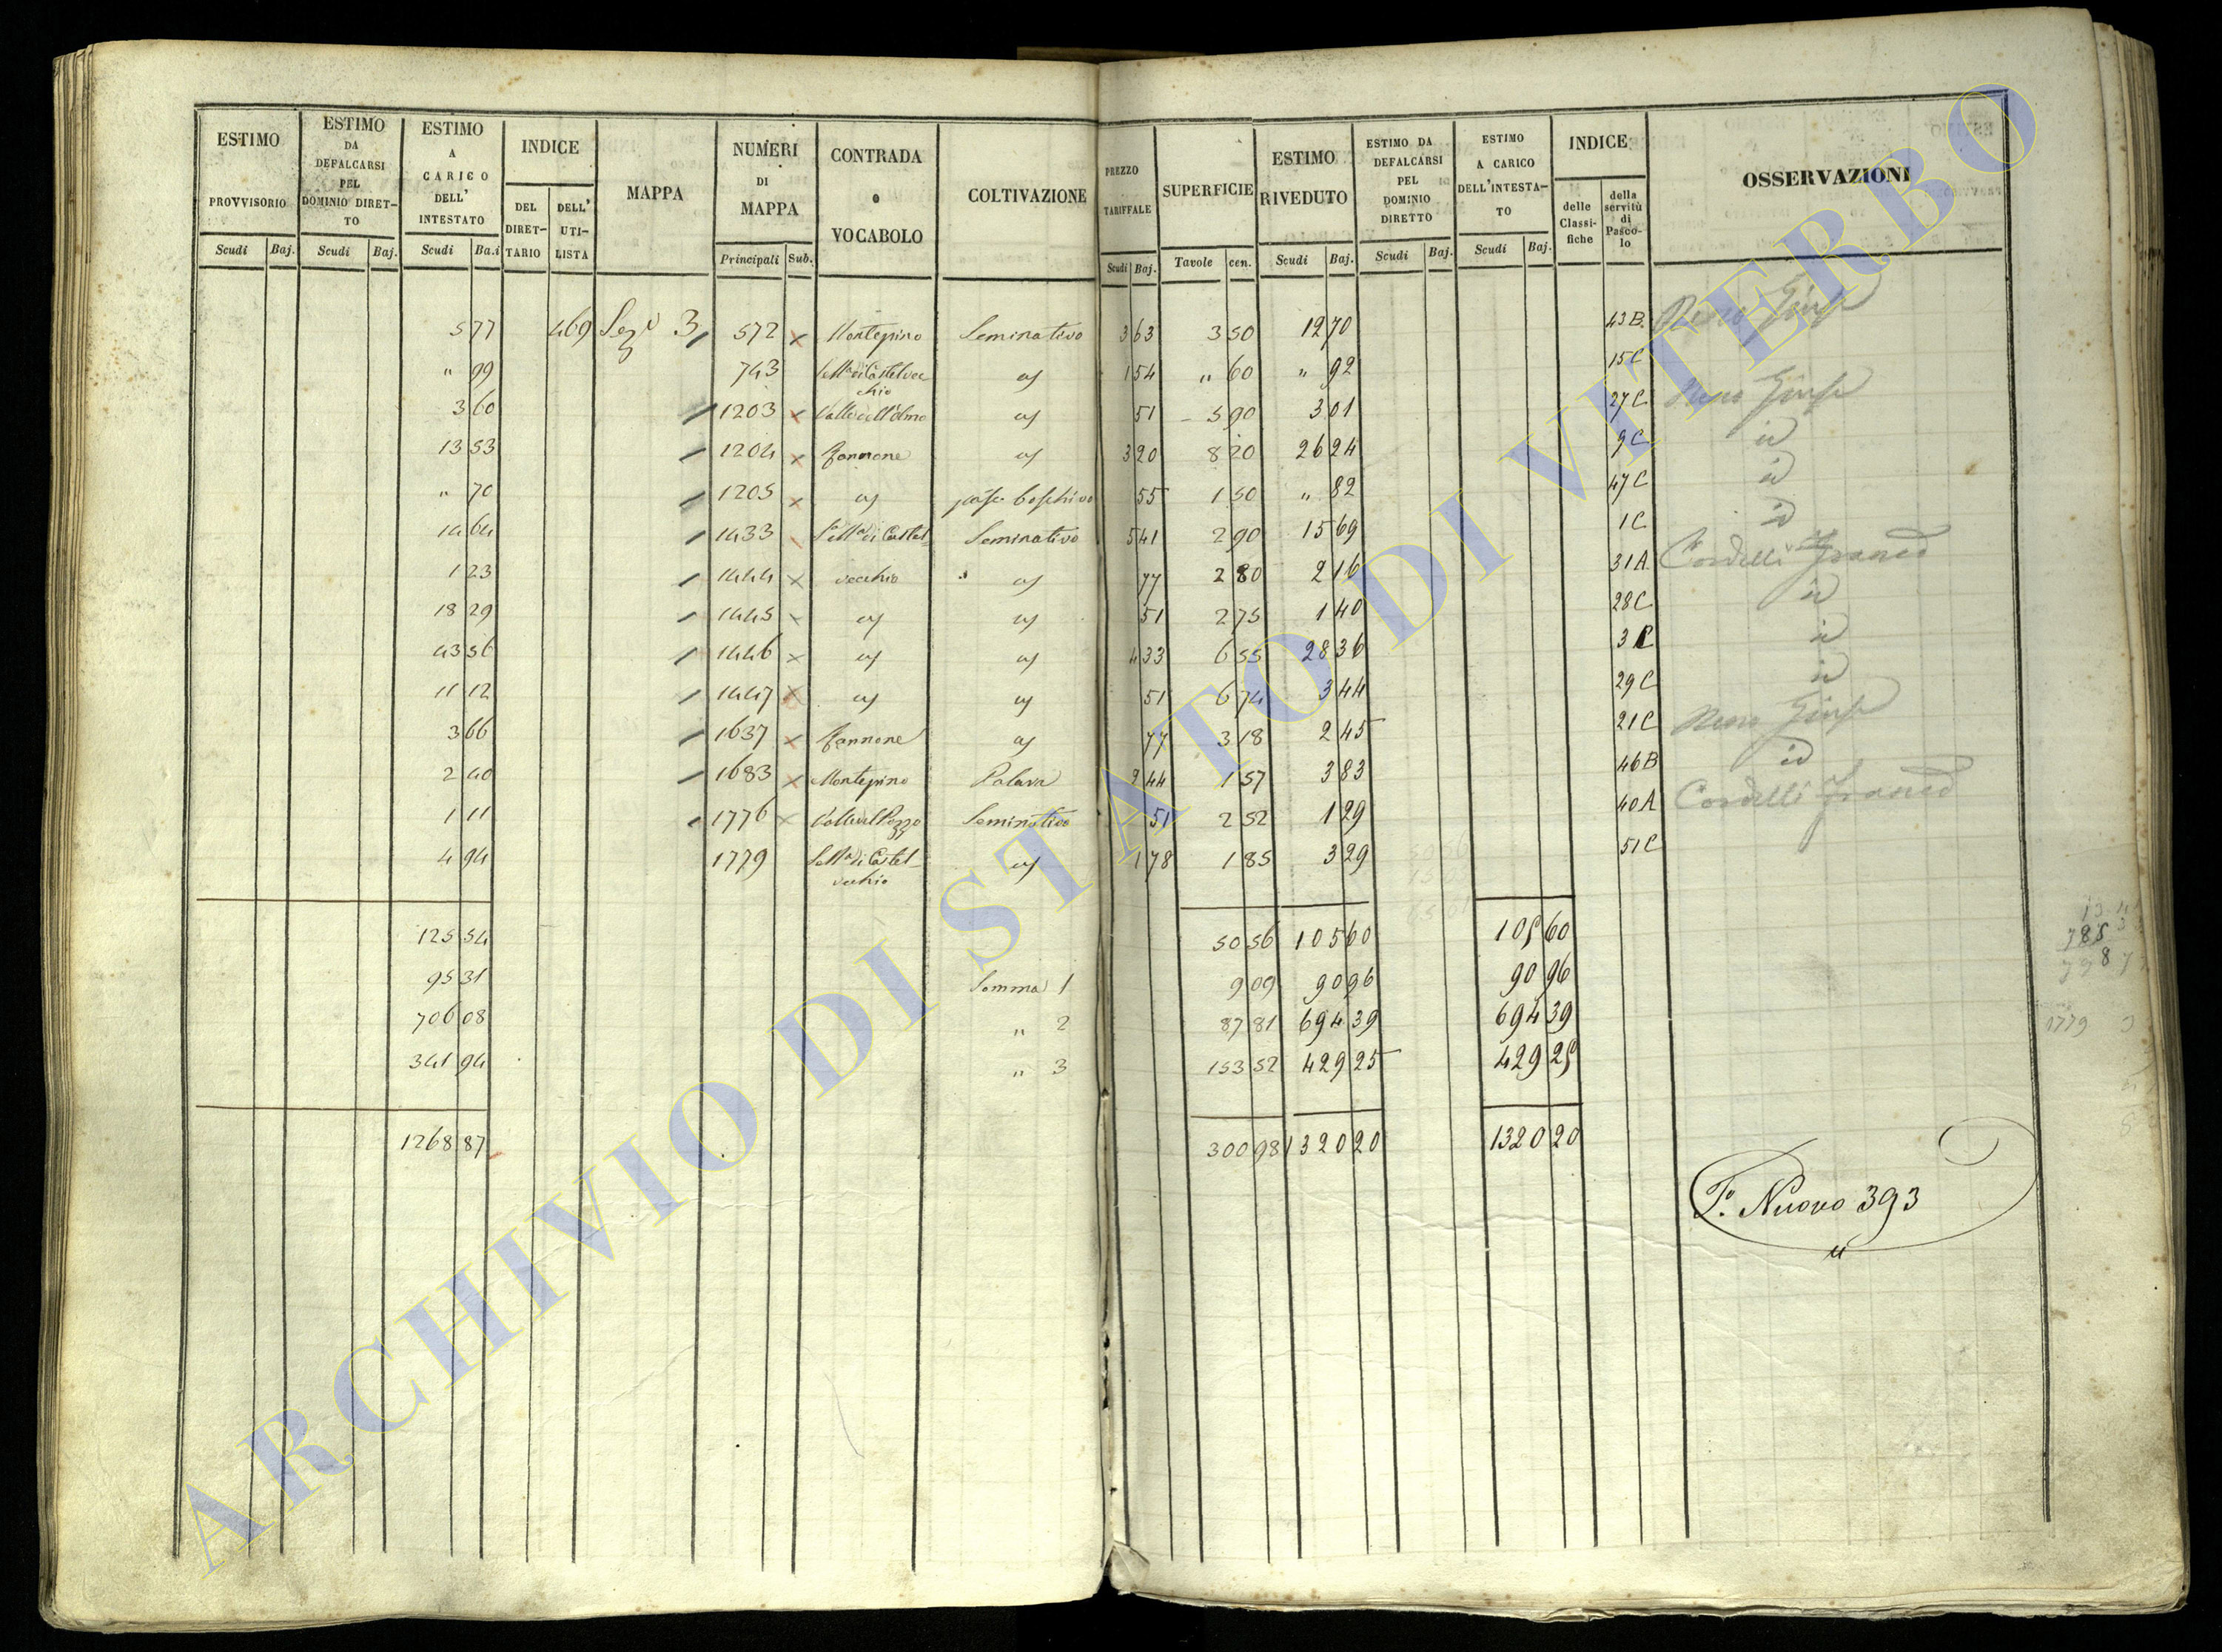 ESTIMO PROVVISORIO | ESTIMO DA DEFALCARSI PEL DOMINIO DIRET-TO | ESTIMO A CARICO DELL' INTESTATO | INDICE | MAPPA | NUMERI DI MAPPA | CONTRADA o VOCABOLO | COLTIVAZIONE | PREZZO TARIFFALE | SUPERFICIE | ESTIMO RIVEDUTO | ESTIMO DA DEFALCARSI PEL DOMINIO DIRETTO | ESTIMO A CARICO DELL'INTESTA-TO | INDICE | OSSERVAZIONI
DEL DIRET-TARIO | DELL' UTI-LISTA | delle Classi-fiche | della servitù di Pasco-lo
Scudi | Baj. | Scudi | Baj. | Scudi | Ba.i | Principali | Sub. | Scudi | Baj. | Tavole | cen. | Scudi | Baj. | Scudi | Baj. | Scudi | Baj.
5 77 | 469 | Sez 3 | 572 | Montepino | Seminativo | 3 63 | 3 50 | 12 70 | 43 B.
" 99 | 743 | di Castelvec chio | " 60 | 1 54 | " 92 | 15 C
3 60 | 1203 | Valle dell'olmo | 51 | 5 90 | 3 01 | 27 C
13 53 | 1204 | 3 20 | 8 20 | 26 24 | 9 C | id
" 70 | 1205 | boschivo | 55 | 1 50 | " 82 | 47 C | id
14 64 | 1433 | di Castel- | Seminativo | 5 41 | 2 90 | 15 69 | 1 C | id
1 23 | 1444 | vecchio | 77 | 2 80 | 2 16 | 31 A | Cordelli
18 29 | 1445 | 51 | 2 75 | 1 40 | 28 C | id
43 56 | 1446 | 4 33 | 6 55 | 28 36 | 3 C | id
11 12 | 1447 | 51 | 6 74 | 3 44 | 29 C | id
3 66 | 1637 | 77 | 3 18 | 2 45 | 21 C
2 40 | 1683 | Montepino | 2 44 | 1 57 | 3 83 | 46 B | id
1 11 | 1776 | Valle del Pozzo | Seminativo | 51 | 2 52 | 1 29 | 40 A | Cordelli
4 94 | 1779 | di Castel-vecchio | 1 78 | 1 85 | 3 29 | 51 C
125 54 | 50 56 | 105 60 | 105 60
95 31 | Somma 1 | 9 09 | 90 96 | 90 96
706 08 | " 2 | 87 81 | 694 39 | 694 39
341 94 | " 3 | 153 52 | 429 25 | 429 25
1779
1268 87 | 300 98 | 1320 20 | 1320 20
F. Nuovo 393
ARCHIVIO DI STATO DI VITERBO